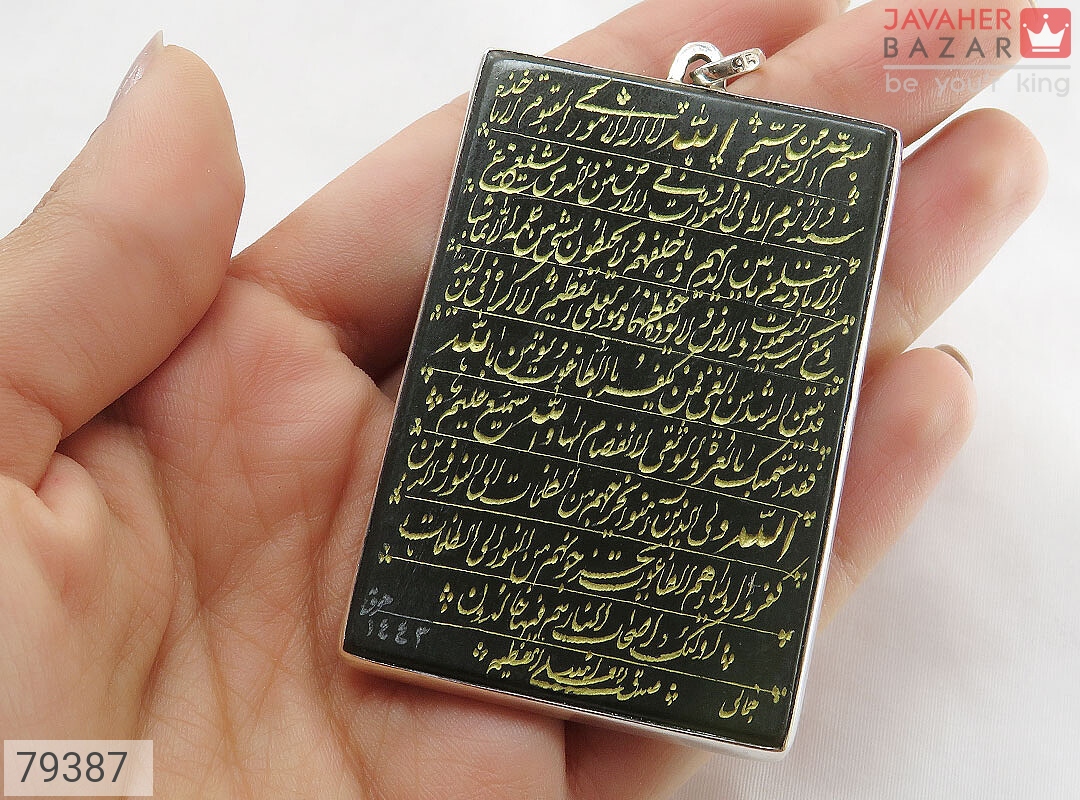 JAVAHER
BAZAR
be your king
بسم الله الرحمن الرحیم الله لا اله الا هو الحی القیوم لا تاخذه
سنه و لا نوم له ما فی السموات و ما فی الارض من ذالذی یشفع عنده
الا باذنه یعلم ما بین ایدیهم و ما خلفهم و لا یحیطون بشیء من علمه الا بما شاء
وسع کرسیه السموات و الارض و لا یوده حفظهما و هو العلی العظیم لا اکراه فی الدین
قد تبین الرشد من الغی فمن یکفر بالطاغوت و یومن بالله
فقد استمسک بالعروه الوثقی لا انفصام لها و الله سمیع علیم
الله ولی الذین آمنوا یخرجهم من الظلمات الی النور و الذین
کفروا اولیاهم الطاغوت یخرجونهم من النور الی الظلمات
اولئک اصحاب النار هم فیها خالدون
صدق الله العلی العظیم
۱۴۴۳
79387